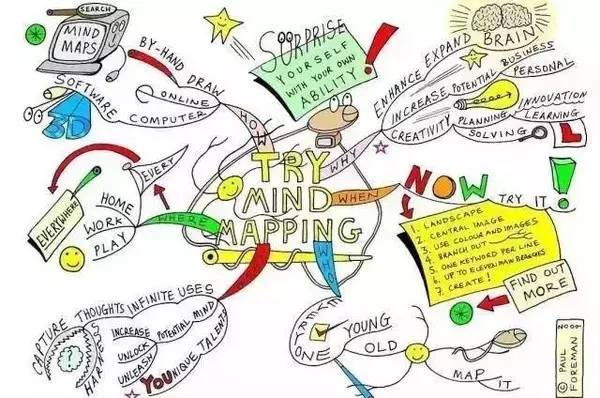 SEARCH
MIND
MAPS
BY-HAND
DRAW
SOFTWARE
ONLINE
COMPUTER
3D
HOW
SURPRISE
YOURSELF
WITH YOUR OWN
ABILITY
!
ENHANCE EXPAND BRAIN
INCREASE POTENTIAL
BUSINESS
PERSONAL
CREATIVITY
PLANNING
SOLVING
INNOVATION
LEARNING
L
WHY
TRY
MIND
MAPPING
WHEN
NOW
TRY IT
!
1. LANDSCAPE
2. CENTRAL IMAGE
3. USE COLOUR AND IMAGES
4. BRANCH OUT
5. ONE KEYWORD PER LINE
6. UP TO ELEVEN MAIN BRANCHES
7. CREATE!
FIND OUT
MORE
WHERE
EVERY
EVERYWHERE
HOME
WORK
PLAY
CAPTURE THOUGHTS INFINITE USES
HARNESS
INCREASE
UNLOCK
UNLEASH
POTENTIAL MIND
YOUNIQUE TALENT
WHO
EVERYONE
YOUNG
OLD
MAP IT
© PAUL
FOREMAN